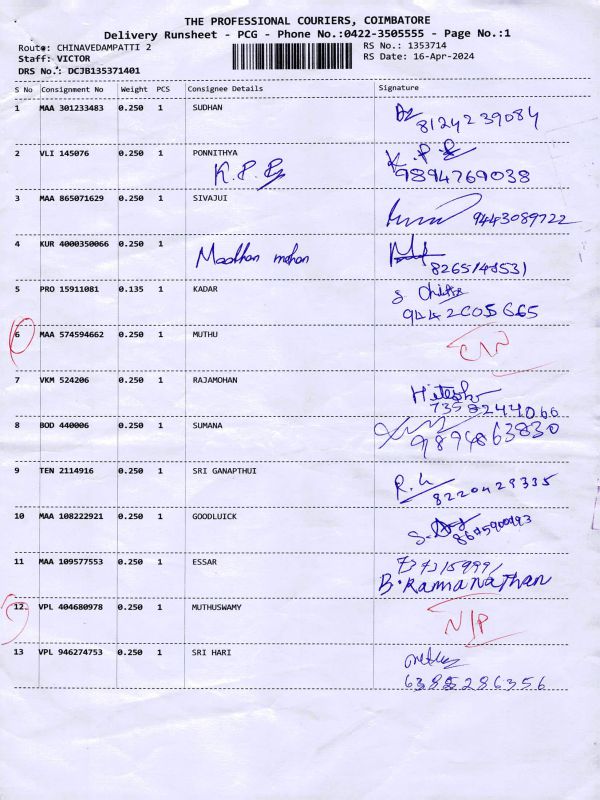 THE PROFESSIONAL COURIERS, COIMBATORE
Delivery Runsheet - PCG - Phone No.:0422-3505555 - Page No.:1
Route: CHINAVEDAMPATTI 2
RS No.: 1353714
Staff: VICTOR
RS Date: 16-Apr-2024
DRS No.: DCJB135371401
S No Consignment No Weight PCS Consignee Details Signature
1 MAA 301233483 0.250 1 SUDHAN
8124239084
2 VLI 145076 0.250 1 PONNITHYA
K.P.
9894769038
3 MAA 865071629 0.250 1 SIVAJUI
9443089722
4 KUR 4000350066 0.250 1 Maathan mohan
5 PRO 15911081 0.135 1 KADAR
9442005665
6 MAA 574594662 0.250 1 MUTHU
7 VKM 524206 0.250 1 RAJAMOHAN
Hitesh
7358244066
8 BOD 440006 0.250 1 SUMANA
9894863830
9 TEN 2114916 0.250 1 SRI GANAPTHUI
8220429335
10 MAA 108222921 0.250 1 GOODLUICK
11 MAA 109577553 0.250 1 ESSAR
B. Ramanathan
12 VPL 404680978 0.250 1 MUTHUSWAMY
N/P
13 VPL 946274753 0.250 1 SRI HARI
6385286356